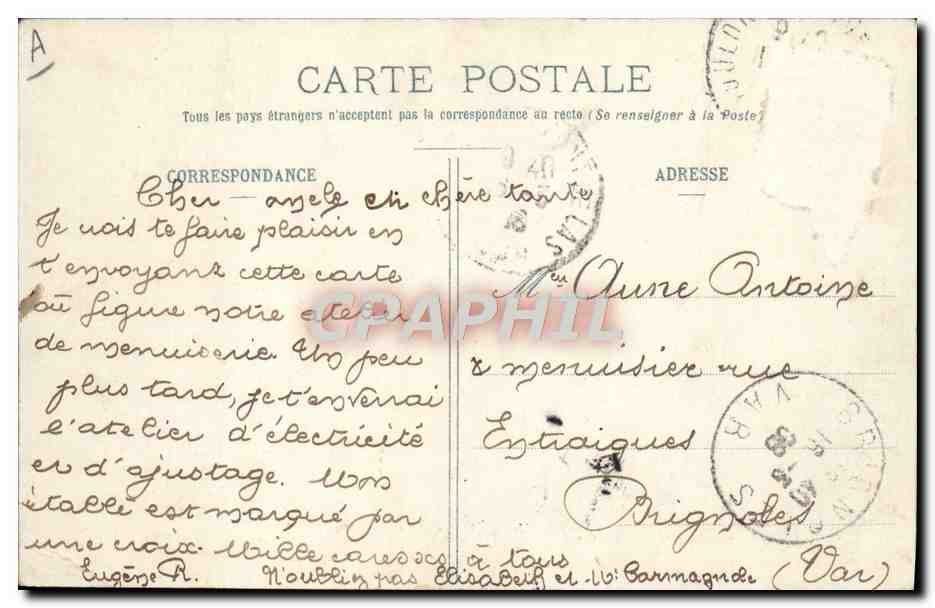 A
CARTE POSTALE
Tous les pays étrangers n'acceptent pas la correspondance au recto (Se renseigner à la Poste)
CORRESPONDANCE
Cher oncle et chère tante
Je vois te faire plaisir en
t'envoyant cette carte
où figure notre atelier
de menuiserie. Un peu
plus tard, je t'enverrai
l'atelier d'électricité
et d'ajustage. Mon
établi est marqué par
une croix. Mille caresses à tous
Eugène R. N'oubliez pas Elisabeth et
ADRESSE
Aune Antoine
menuisier rue
Entraigues
Brignoles
(Var)
CPAPHIL
BRIGNOLES
VAR